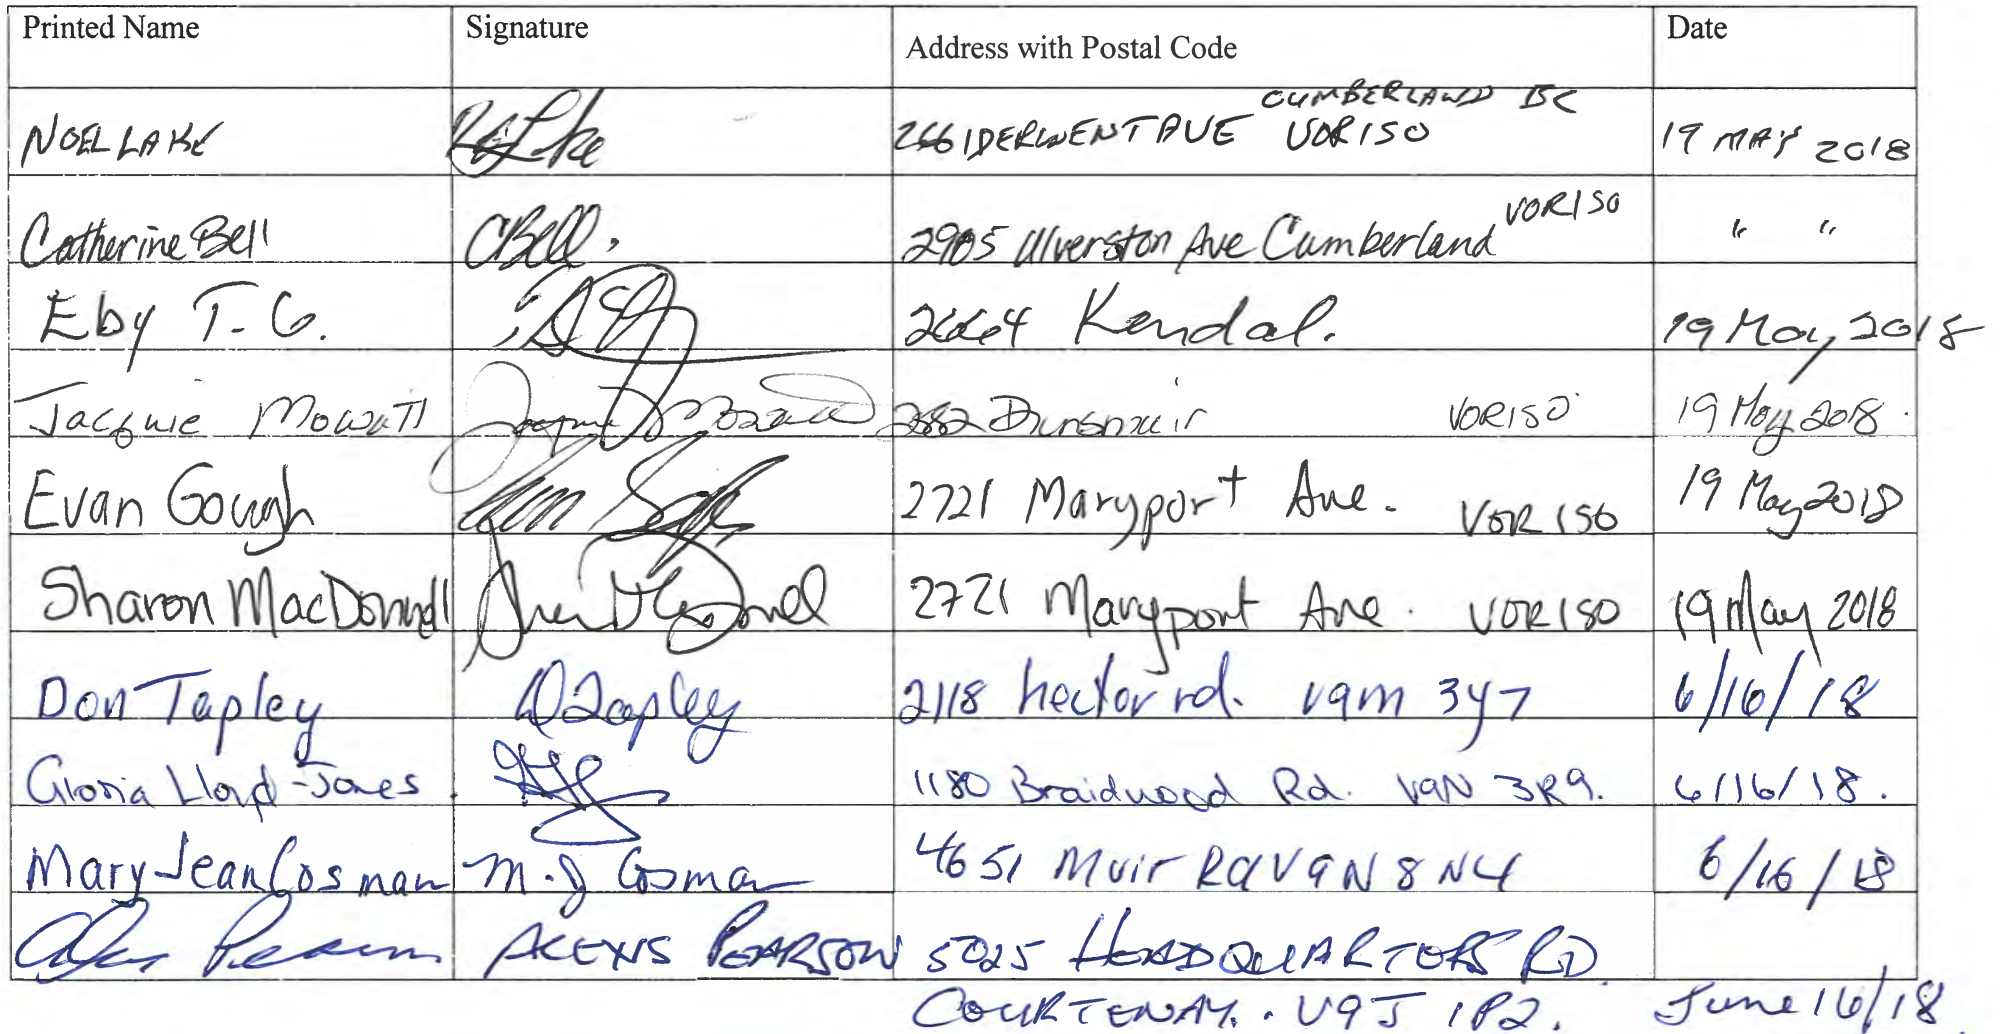 Printed Name Signature Address with Postal Code Date
CUMBERLAND BC
NOEL LAKE 2661 DERWENT AVE V0R1S0 19 MAY 2018
V0R1S0
Catherine Bell CBell. 2905 Ulverston Ave Cumberland " "
Eby T. G. 2664 Kendal. 19 May 2018
Jacquie Mowatt 2882 Dunsmuir V0R1S0 19 May 2018.
Evan Gough 2721 Maryport Ave. V0R 1S0 19 May 2018
Sharon MacDonnell 2721 Maryport Ave. V0R1S0 19 May 2018
Don Tapley D Tapley 2118 hector rd. v9m 3y7 6/16/18
Gloria Lloyd-Jones 1180 Braidwood Rd. V9N 3R9. 6/16/18.
Mary Jean Cosman M.J Cosman 4651 Muir Rd V9N 8N4 6/16/18
Pearson ALEXIS PEARSON 5025 HEADQUARTERS RD
COURTENAY. V9J 1P2. June 16/18